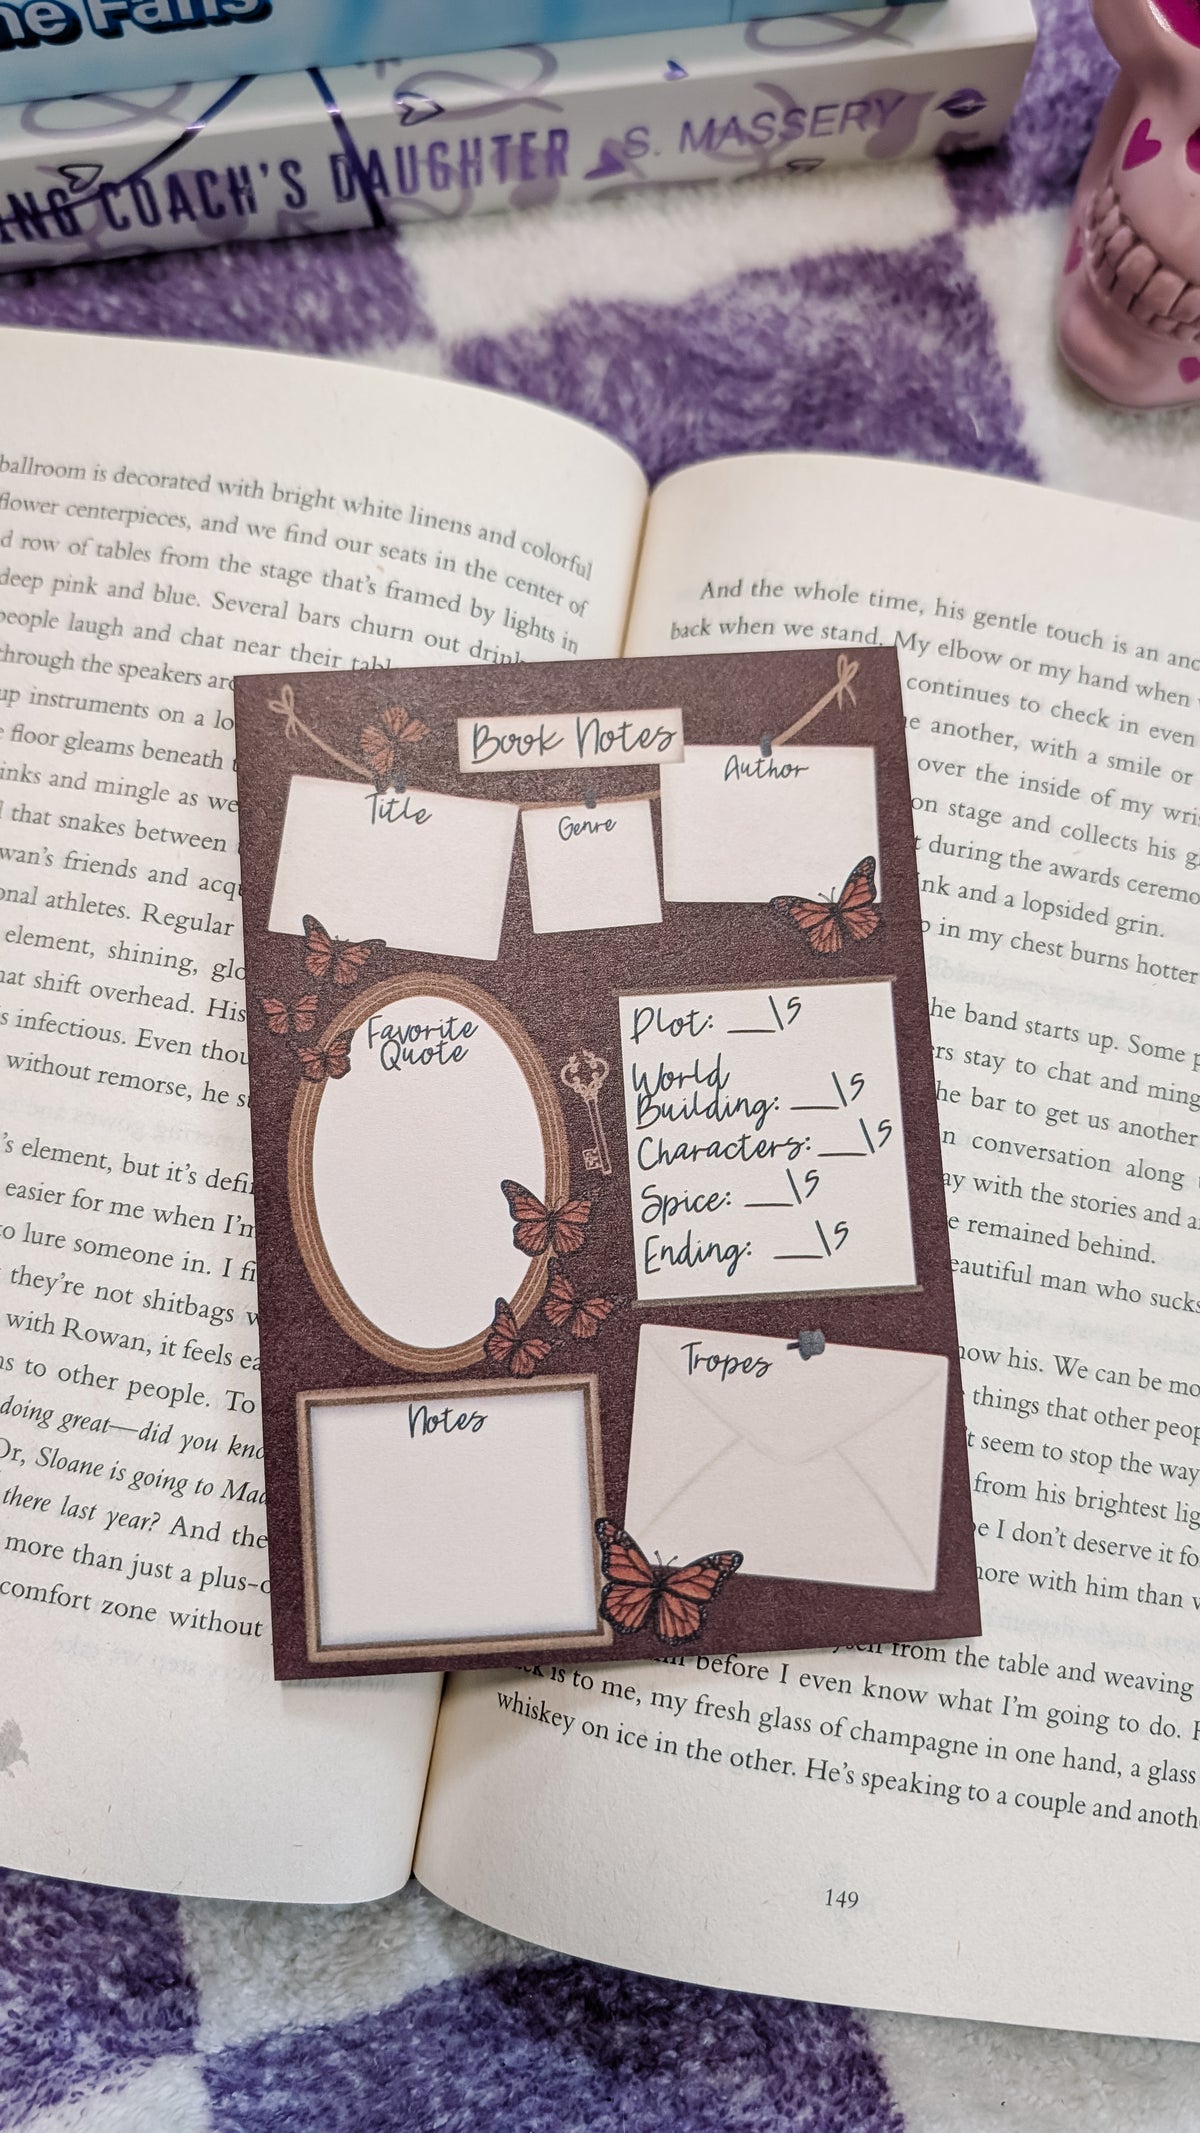 he Fans
NG COACH'S DAUGHTER S. MASSERY
ballroom is decorated with bright white linens and colorful
flower centerpieces, and we find our seats in the center of
d row of tables from the stage that's framed by lights in
deep pink and blue. Several bars churn out
people laugh and chat near their
through the speakers
up instruments on a
floor gleams beneath
inks and mingle as we
that snakes between
wan's friends and
onal athletes. Regular
element, shining,
hat shift overhead. His
s infectious. Even
without remorse, he
's element, but it's
easier for me when I'm
to lure someone in. I
they're not shitbags
with Rowan, it feels
ns to other people. To
doing great—did you
Or, Sloane is going to
there last year? And the
more than just a
comfort zone without
And the whole time, his gentle touch is an
back when we stand. My elbow or my hand when
continues to check in even
e another, with a smile or
over the inside of my
on stage and collects his
t during the awards
ink and a lopsided grin.
in my chest burns hotter
he band starts up. Some
ers stay to chat and
he bar to get us another
n conversation along
ay with the stories and
e remained behind.
eautiful man who sucks
now his. We can be
things that other
t seem to stop the way
from his brightest
I don't deserve it
more with him than
from the table and weaving
before I even know what I'm going to do.
is to me, my fresh glass of champagne in one hand, a glass
whiskey on ice in the other. He's speaking to a couple and
149
Book Notes
Title
Genre
Author
Favorite
Quote
Plot: __\5
World
Building: __\5
Characters: __\5
Spice: __\5
Ending: __\5
Notes
Tropes